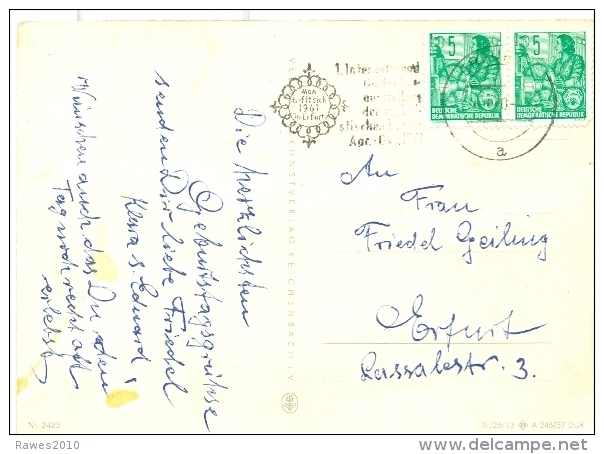 Die herzlichsten
Geburtstagsgrüsse
senden Dir liebe Friedel
Klara u. Eduard
Wünschen auch das Du den
Tag noch recht oft
erlebst
KUNSTVERLAG REICHENBACH I. V.
Man
trifft sich
1961
in Erfurt
1. Internationa
5
5
DEUTSCHE
DEMOKRATISCHE REPUBLIK
DEUTSCHE
DEMOKRATISCHE REPUBLIK
a
An
Frau
Friedel Geiling
Erfurt
Lassallestr. 3.
Nr. 2423
A 246/57 DDR
Rawes2010
http://www.delcampe.net